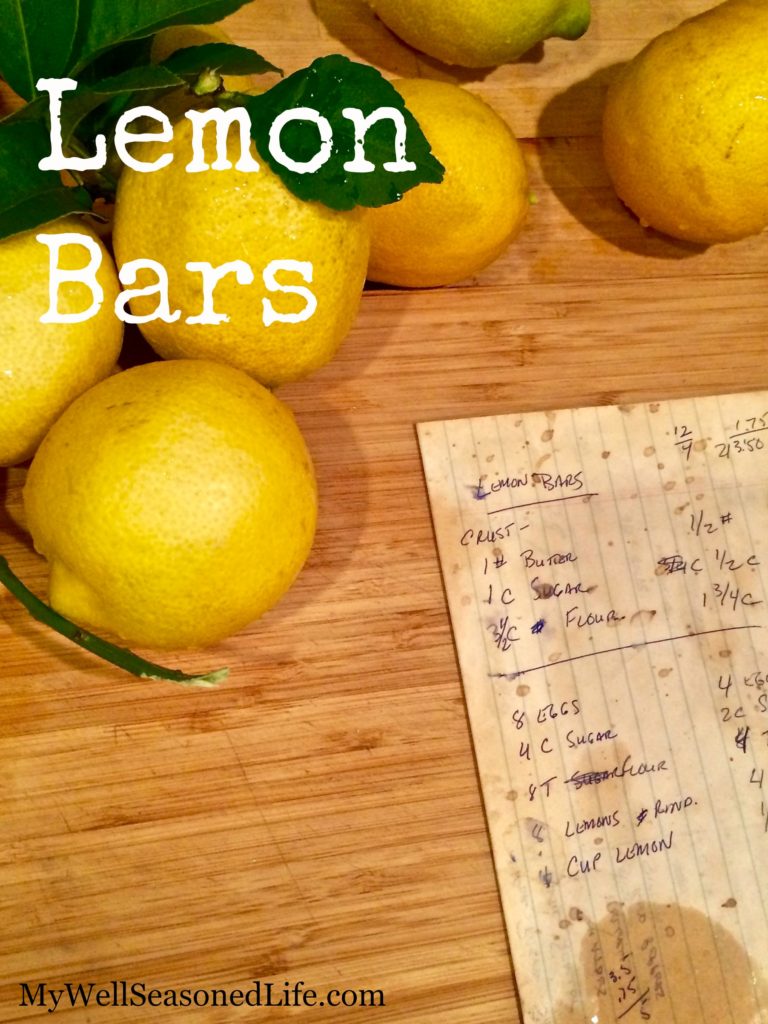 Lemon
Bars
12/4 1.75
2)3.50
LEMON BARS
CRUST- 1/2 #
1# BUTTER 1/2 C
1 C SUGAR 1 3/4 C
FLOUR.
8 EGGS 4
4 C SUGAR 2C
8T FLOUR 4
8 LEMONS RIND. 4
CUP LEMON
3.5
.75
MyWellSeasonedLife.com